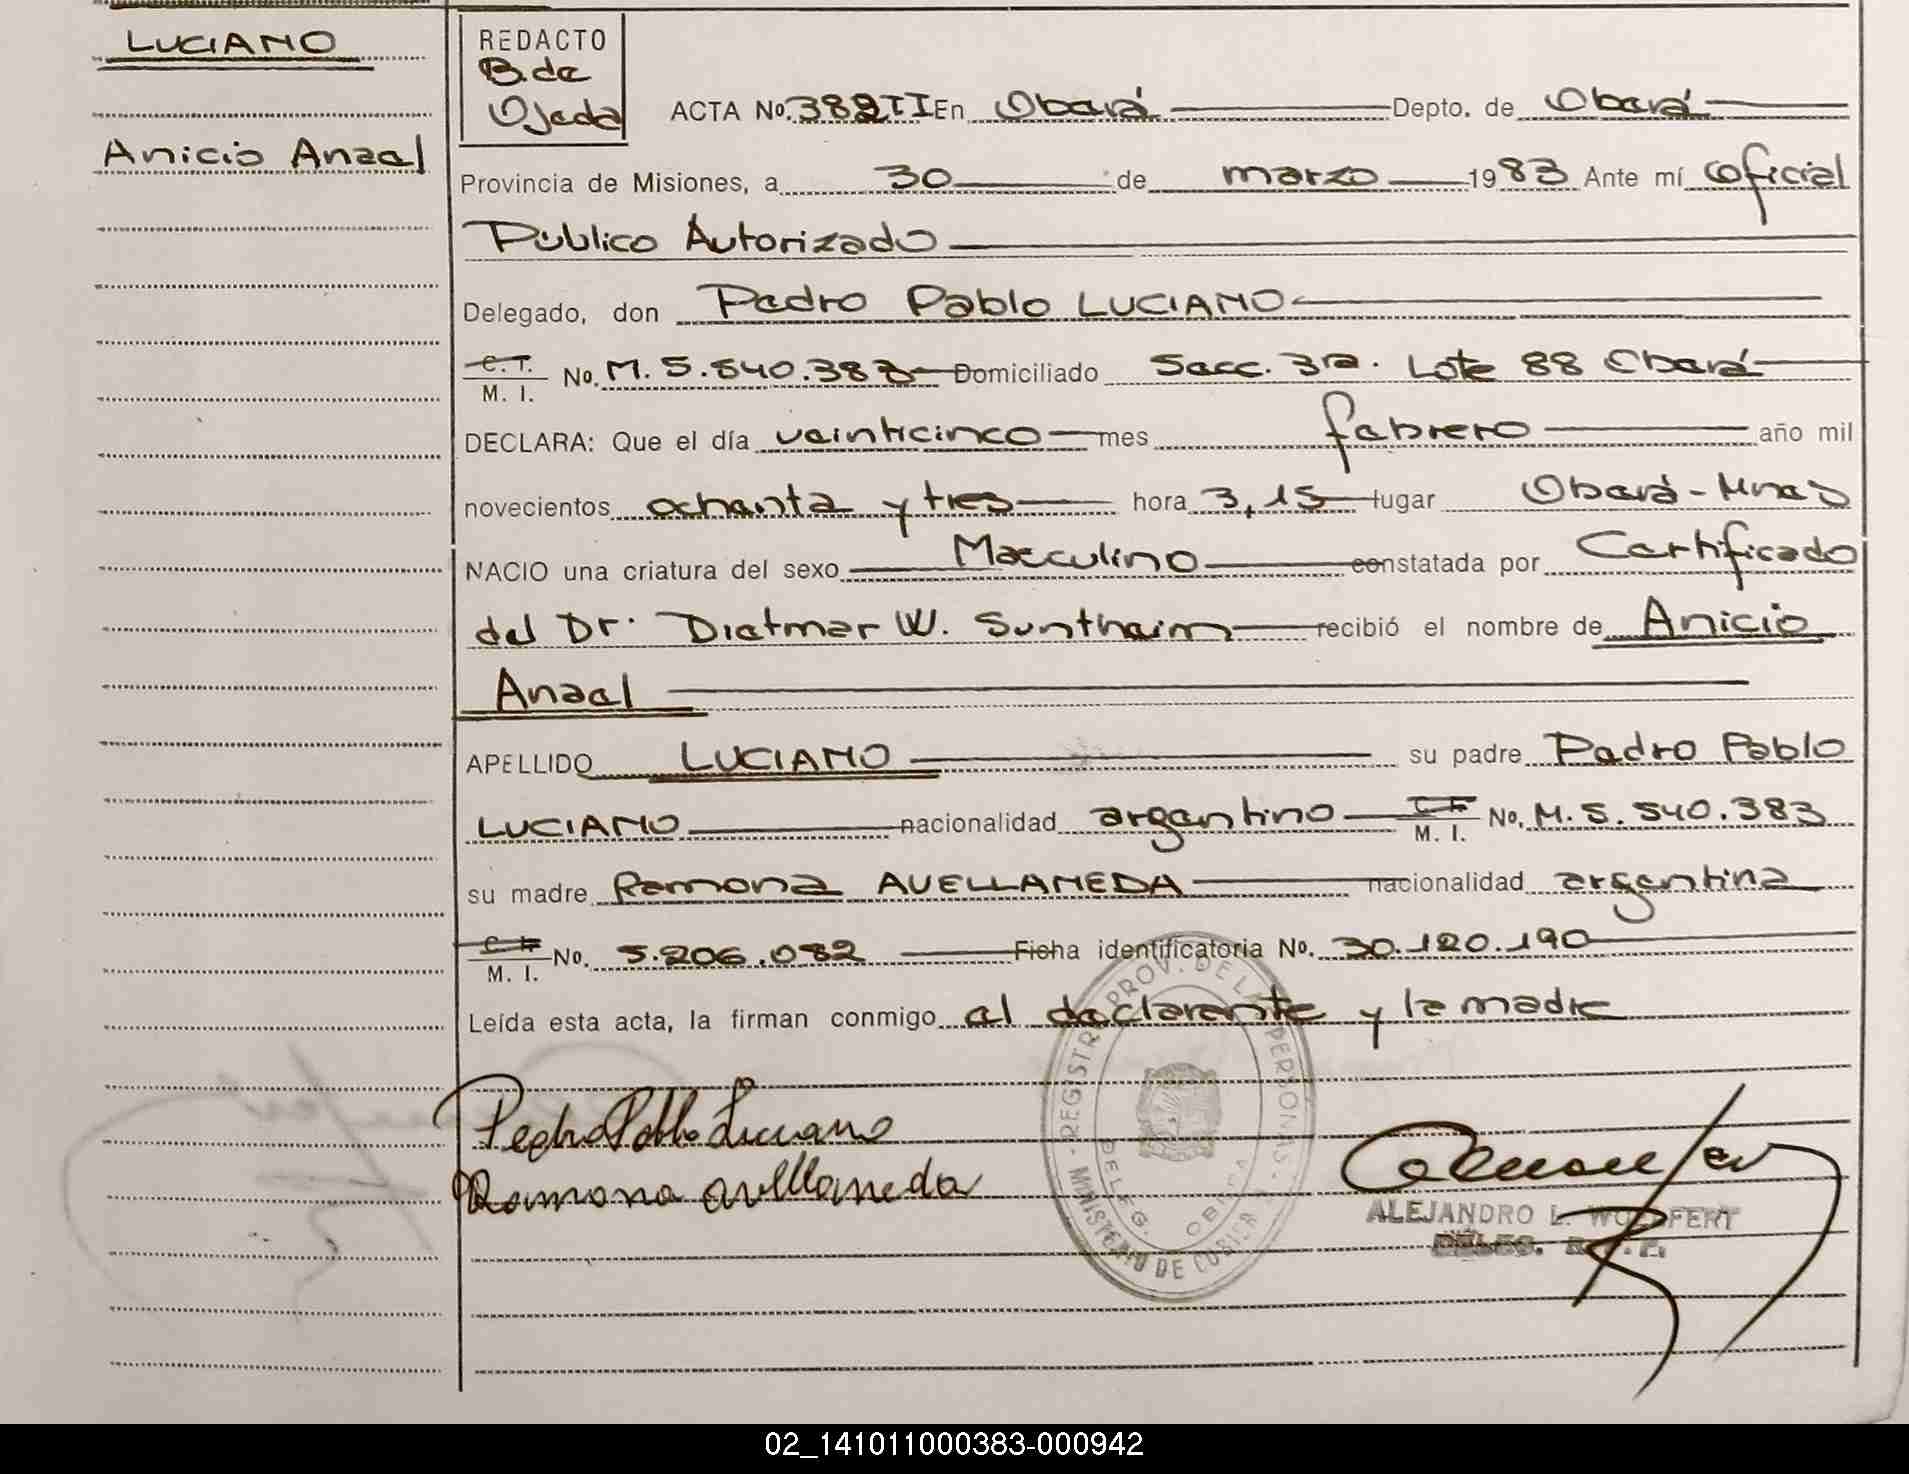 LUCIANO
Anicio Anael
REDACTO
B.de
Ojeda
ACTA No. 382 II En Oberá Depto. de Oberá
Provincia de Misiones, a 30 de marzo 1983 Ante mí oficial
Público Autorizado
Delegado, don Pedro Pablo LUCIANO
C. I.
M. I. No. M. 5.540.383 Domiciliado Secc. 3ra. Lote 88 Oberá
DECLARA: Que el día veinticinco mes febrero año mil
novecientos ochenta y tres hora 3,15 lugar Oberá-Mnes
NACIO una criatura del sexo Masculino constatada por Certificado
del Dr. Dietmar W. Suntheim recibió el nombre de Anicio
Anael
APELLIDO LUCIANO su padre Pedro Pablo
LUCIANO nacionalidad argentino M. I. No. M. 5.540.383
su madre Ramona AVELLANEDA nacionalidad argentina
M. I. No. 5.206.082 Ficha identificatoria No. 30.120.190
Leída esta acta, la firman conmigo el declarante y la madre
Pedro Pablo Luciano
Ramona avellaneda
REGISTRO PROV. DE LAS PERSONAS - MINISTERIO DE
DELEG.
ALEJANDRO L. WOLFFERT
DELEG. R. P. P.
02_141011000383-000942